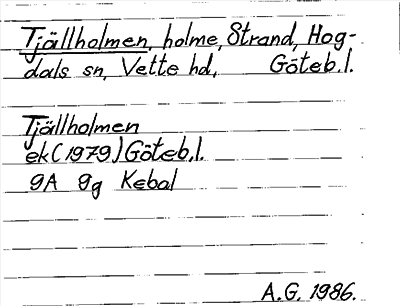 Tjällholmen, holme, Strand, Hog-
dals sn, Vette hd, Göteb.l.
Tjällholmen
ek(1979)Göteb.l.
9A 9g Kebal
A.G. 1986.